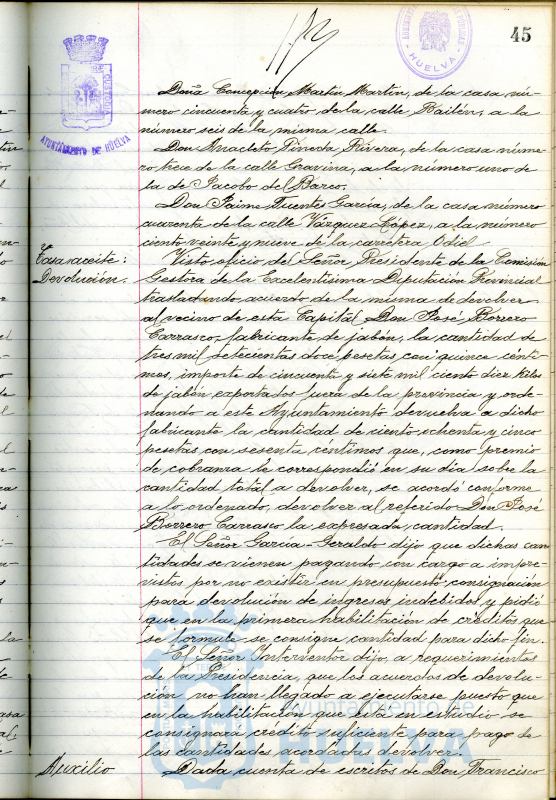 45
AYUNTAMIENTO DE HUELVA
HUELVA
Doña Concepción Martín Martín, de la casa nú-
mero cincuenta y cuatro de la calle Bailén, a la
número seis de la misma calle.
Don Anacleto Pineda Rivera, de la casa núme-
ro trece de la calle Gravina, a la número uno de
la de Jacobo del Barco.
Don Jaime Fuentes García, de la casa número
cuarenta de la calle Vázquez López, a la número
ciento veinte y nueve de la carretera Odiel.
Tasa aceite:
Devolución.
Visto oficio del Señor Presidente de la Comisión
Gestora de la Excelentísima Diputación Provincial
trasladando acuerdo de la misma de devolver
al vecino de esta Capital Don José Borrero
Carrasco, fabricante de jabón, la cantidad de
tres mil setecientas doce pesetas con quince cénti-
mos, importe de cincuenta y siete mil ciento diez kilos
de jabón exportados fuera de la provincia y orde-
nando a este Ayuntamiento devuelva a dicho
fabricante la cantidad de ciento ochenta y cinco
pesetas con sesenta céntimos que, como premio
de cobranza le correspondió en su día sobre la
cantidad total a devolver, se acordó conforme
a lo ordenado, devolver al referido Don José
Borrero Carrasco la expresada cantidad.
El Señor García-Geraldo dijo que dichas can
tidades se vienen pagando con cargo a impre-
vistos por no existir en presupuesto consignación
para devolución de ingresos indebidos y pidió
que en la primera habilitación de créditos que
se formule se consigne cantidad para dicho fin.
El Señor Interventor dijo, a requerimientos
de la Presidencia, que los acuerdos de devolu-
ción no han llegado a ejecutarse puesto que
en la habilitación que está en estudio se
consignará crédito suficiente para pago de
las cantidades acordadas devolver.
Auxilio
Dada cuenta de escritos de Don Francisco
Ayuntamiento de
HUELVA